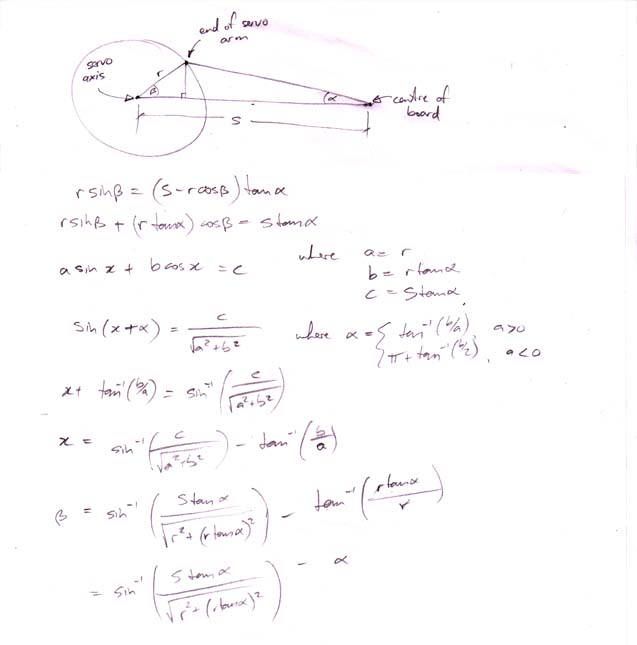 end of servo
arm
servo
axis
r
β
α
centre of
board
S
r sinβ = (S-rcosβ) tanα
r sinβ + (r tanα) cosβ = S tanα
a sin x + b cos x = c where a = r
b = r tanα
c = S tanα
sin (x+α) = c / √a²+b² where α = { tan⁻¹ (b/a), a>0
{ π + tan⁻¹ (b/2), a<0
x + tan⁻¹ (b/a) = sin⁻¹ (c / √a²+b²)
x = sin⁻¹ (c / √a²+b²) - tan⁻¹ (b/a)
β = sin⁻¹ (S tanα / √r²+(r tanα)²) - tan⁻¹ (r tanα / r)
= sin⁻¹ (S tanα / √r²+(r tanα)²) - α